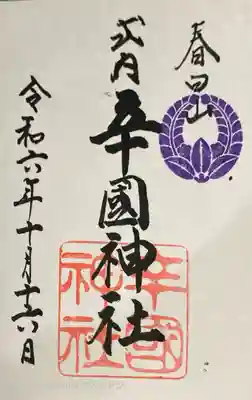 春日山
式内
辛國神社
辛國
神社
令和六年十月十六日